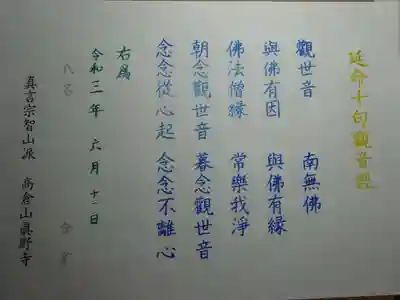 延命十句觀音經
觀世音　南無佛
與佛有因　與佛有緣
佛法僧緣　常樂我淨
朝念觀世音　暮念觀世音
念念從心起　念念不離心
右為
令和三年　六月十二日
真言宗智山派　高倉山眞野寺